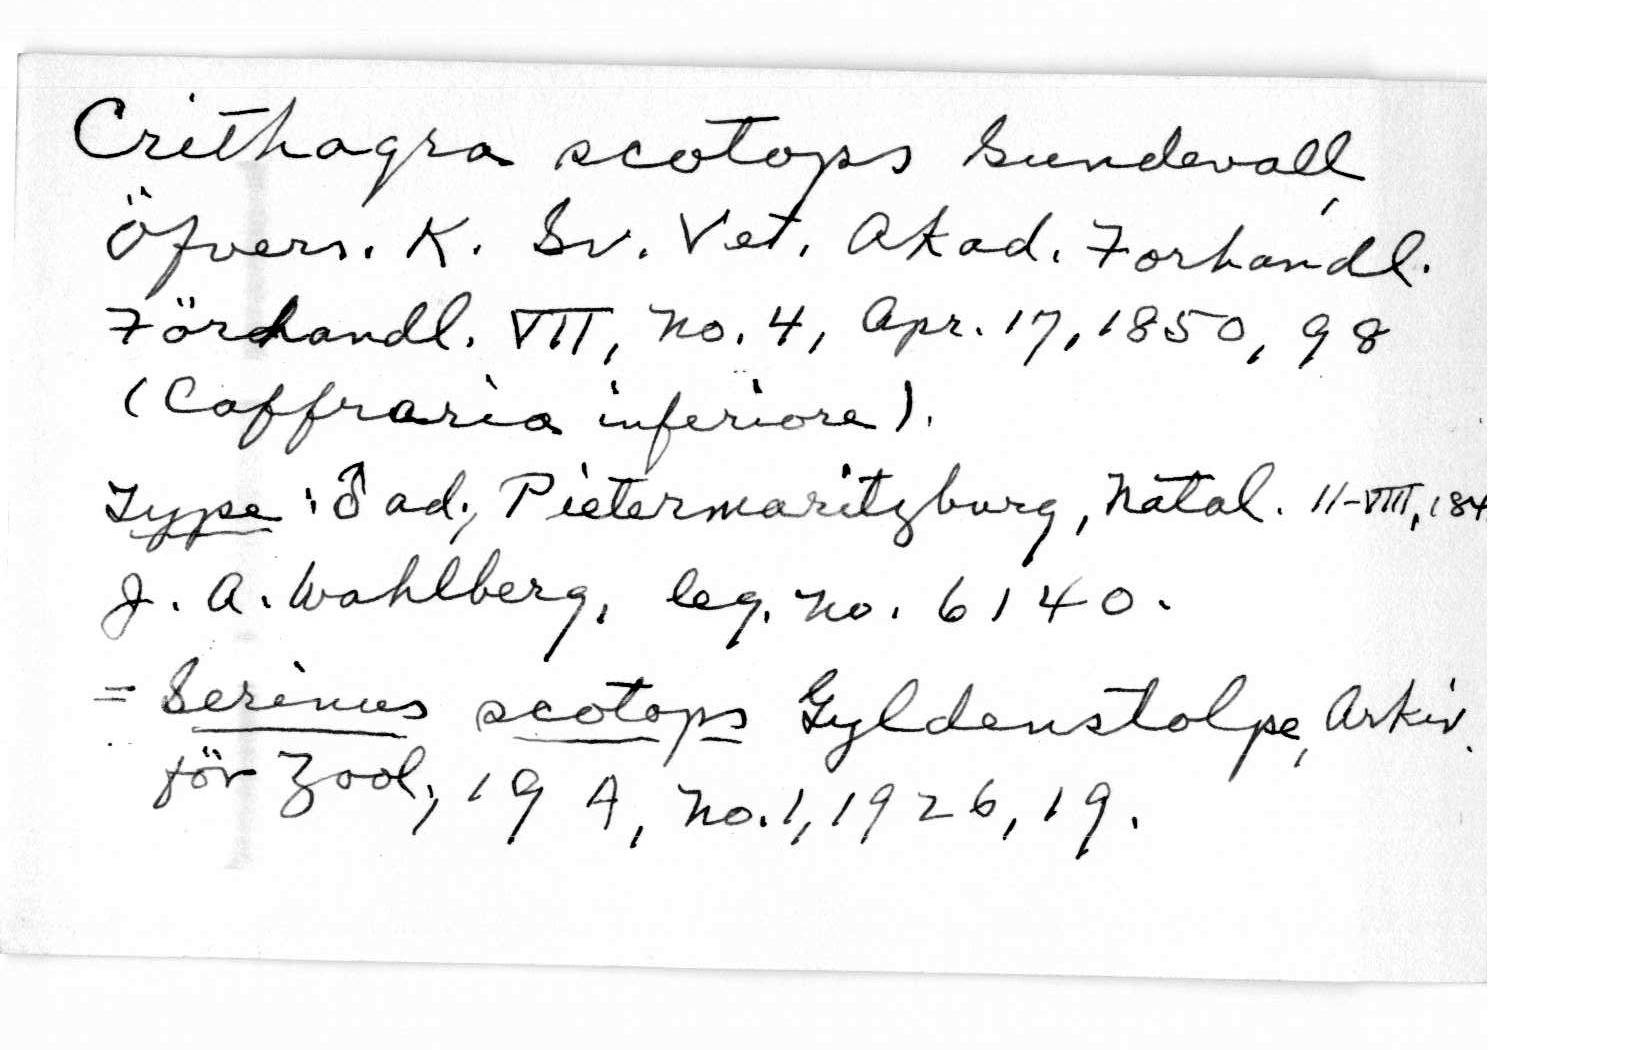 Crithagra scotops Sundevall,
Öfvers. K. Sv. Vet. Akad. Forhandl.
Förhandl. VII, no. 4, Apr. 17, 1850, 98
(Caffraria inferiore).
Type: ♂ ad., Pietermaritzburg, Natal. 11-VIII, 184
J. A. Wahlberg, leg. no. 6140.
= Serinus scotops Gyldenstolpe, Arkiv.
för Zool., 19 A, no. 1, 1926, 19.